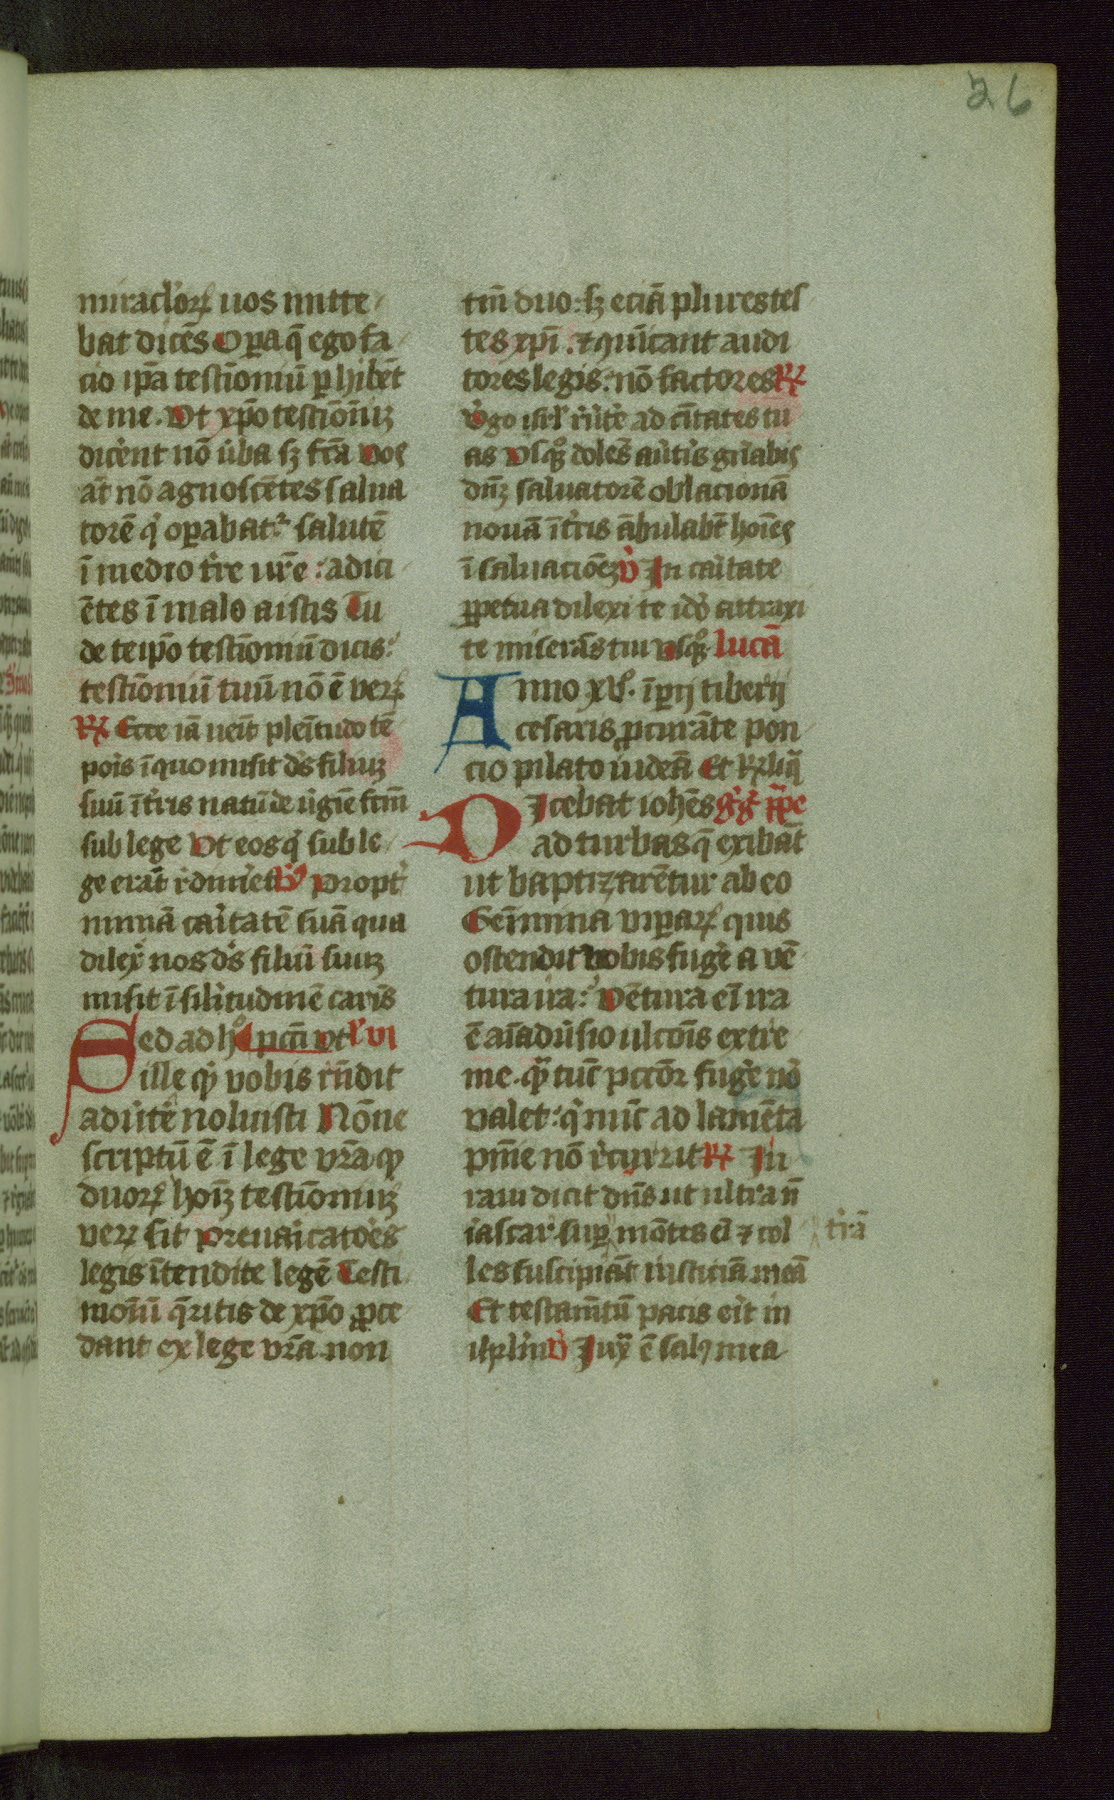 26
miraclorꝝ uos mitte
bat dicēs Oꝑa q̄ ego fa
cio ip̄a testīoniū ꝑhibēt
de me. Ut xp̄o testīoniuꝫ
dicent nō ūba sꝫ fc̄a Uos
at̄ nō agnoscētes salua
torē q̇ oꝑabat᷑ salutē
ī medio t̄re ur̄e: adici
ētes ī malo aistis Tu
de teip̄o testīoniū dicis:
testīoniū tuū nō ē verꝝ
R̄x Ecce iā ueīt plenītudo tē
pois ī quo misit ds̄ filiuꝫ
suū ī t̄ris natū de ūgīe fc̄m
sub lege Ut eos q̇ sub le
ge erāt r̄dimēt V̄ Propt̄
nimiā caītatē suā qua
dilex̄ nos ds̄ filiū suuꝫ
misit ī silitudinē carīs
Sed ad hͦ pc̄m ut xvi
ille qͥ vobis rn̄dit
adūtē noluisti Nōne
scriptū ē ī lege vr̄a qͥ
duorꝝ hoīꝫ testīoniuꝫ
verꝝ sit Preuaīcatoēs
legis ītendite legē Testi
moniū q̄ritis de xp̄o ꝓce
dant ex lege vr̄a non
tm̄ duo: sꝫ eciā plures tes
tes xp̄i. ⁊ iudicant audi
tores legis: nō factores R̄x
V̄go isrl̄ r̄ūte ad cītates tu
as Usqꝫ doles̄ aūtis gn̄abiꝭ
dn̄ꝫ saluatorē oblacionā
nouā ī t̄ris ābulabt̄ hoīeꝭ
ī saluacōeꝫ V̄ In caītate
ꝑpetua dilexi te idō attraxi
te miserās tui usqꝫ lucā
Anno xv. īꝑij tiberij
cesaris ꝓcurāte pon
cio pilato iudeā Et r̄liq̄
Dicebat ioh̄es g̊g̊ p̄pe
ad turbas q̄ exibāt
ut baptizarētur ab eo
Geīmina viꝑarꝝ quis
ostendit vobis fuge a vē
tura ira: Vētura eī ira
ē aīaduīsio ulcōis extre
me. qͣ tūc pctōr fuge nō
valet: q̇ nūc ad lamēta
pnīe nō r̄currit R̄x In
raiu dicit dns̄ ut ultra n̄
īascar suꝑ mōtes eī ⁊ col
t̄rā
les suscipiāt iusticiā meā
Et testam̄tū pacis eīt in
ihrl̄m V̄ Iuẍ ē salꝰ mea